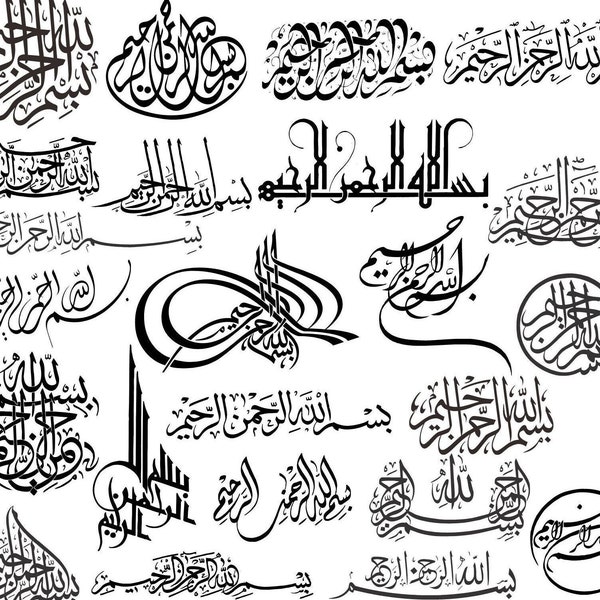 الله الرحمن الرحيم
بسم الله الرحمن الرحيم
بسم الله الرحمن الرحيم
بسم الله الرحمن الرحيم
الرحمن الرحيم
بسم الله الرحمن الرحيم
بسم الله الرحمن الرحيم
بسم الله الرحمن
بسم الله الرحمن الرحيم
بسم الله الرحمن الرحيم
بسم الله الرحمن الرحيم
بسم الله الرحمن الرحيم
الرحمن الرحيم
بسم الله الرحمن الرحيم
بسم الله الرحمن الرحيم
بسم الله الرحمن الرحيم
بسم الله الرحمن
بسم الله الرحمن الرحيم
بسم الله الرحمن الرحيم
بسم الله الرحمن الرحيم
بسم الله الرحمن الرحيم
بسم الله الرحمن الرحيم